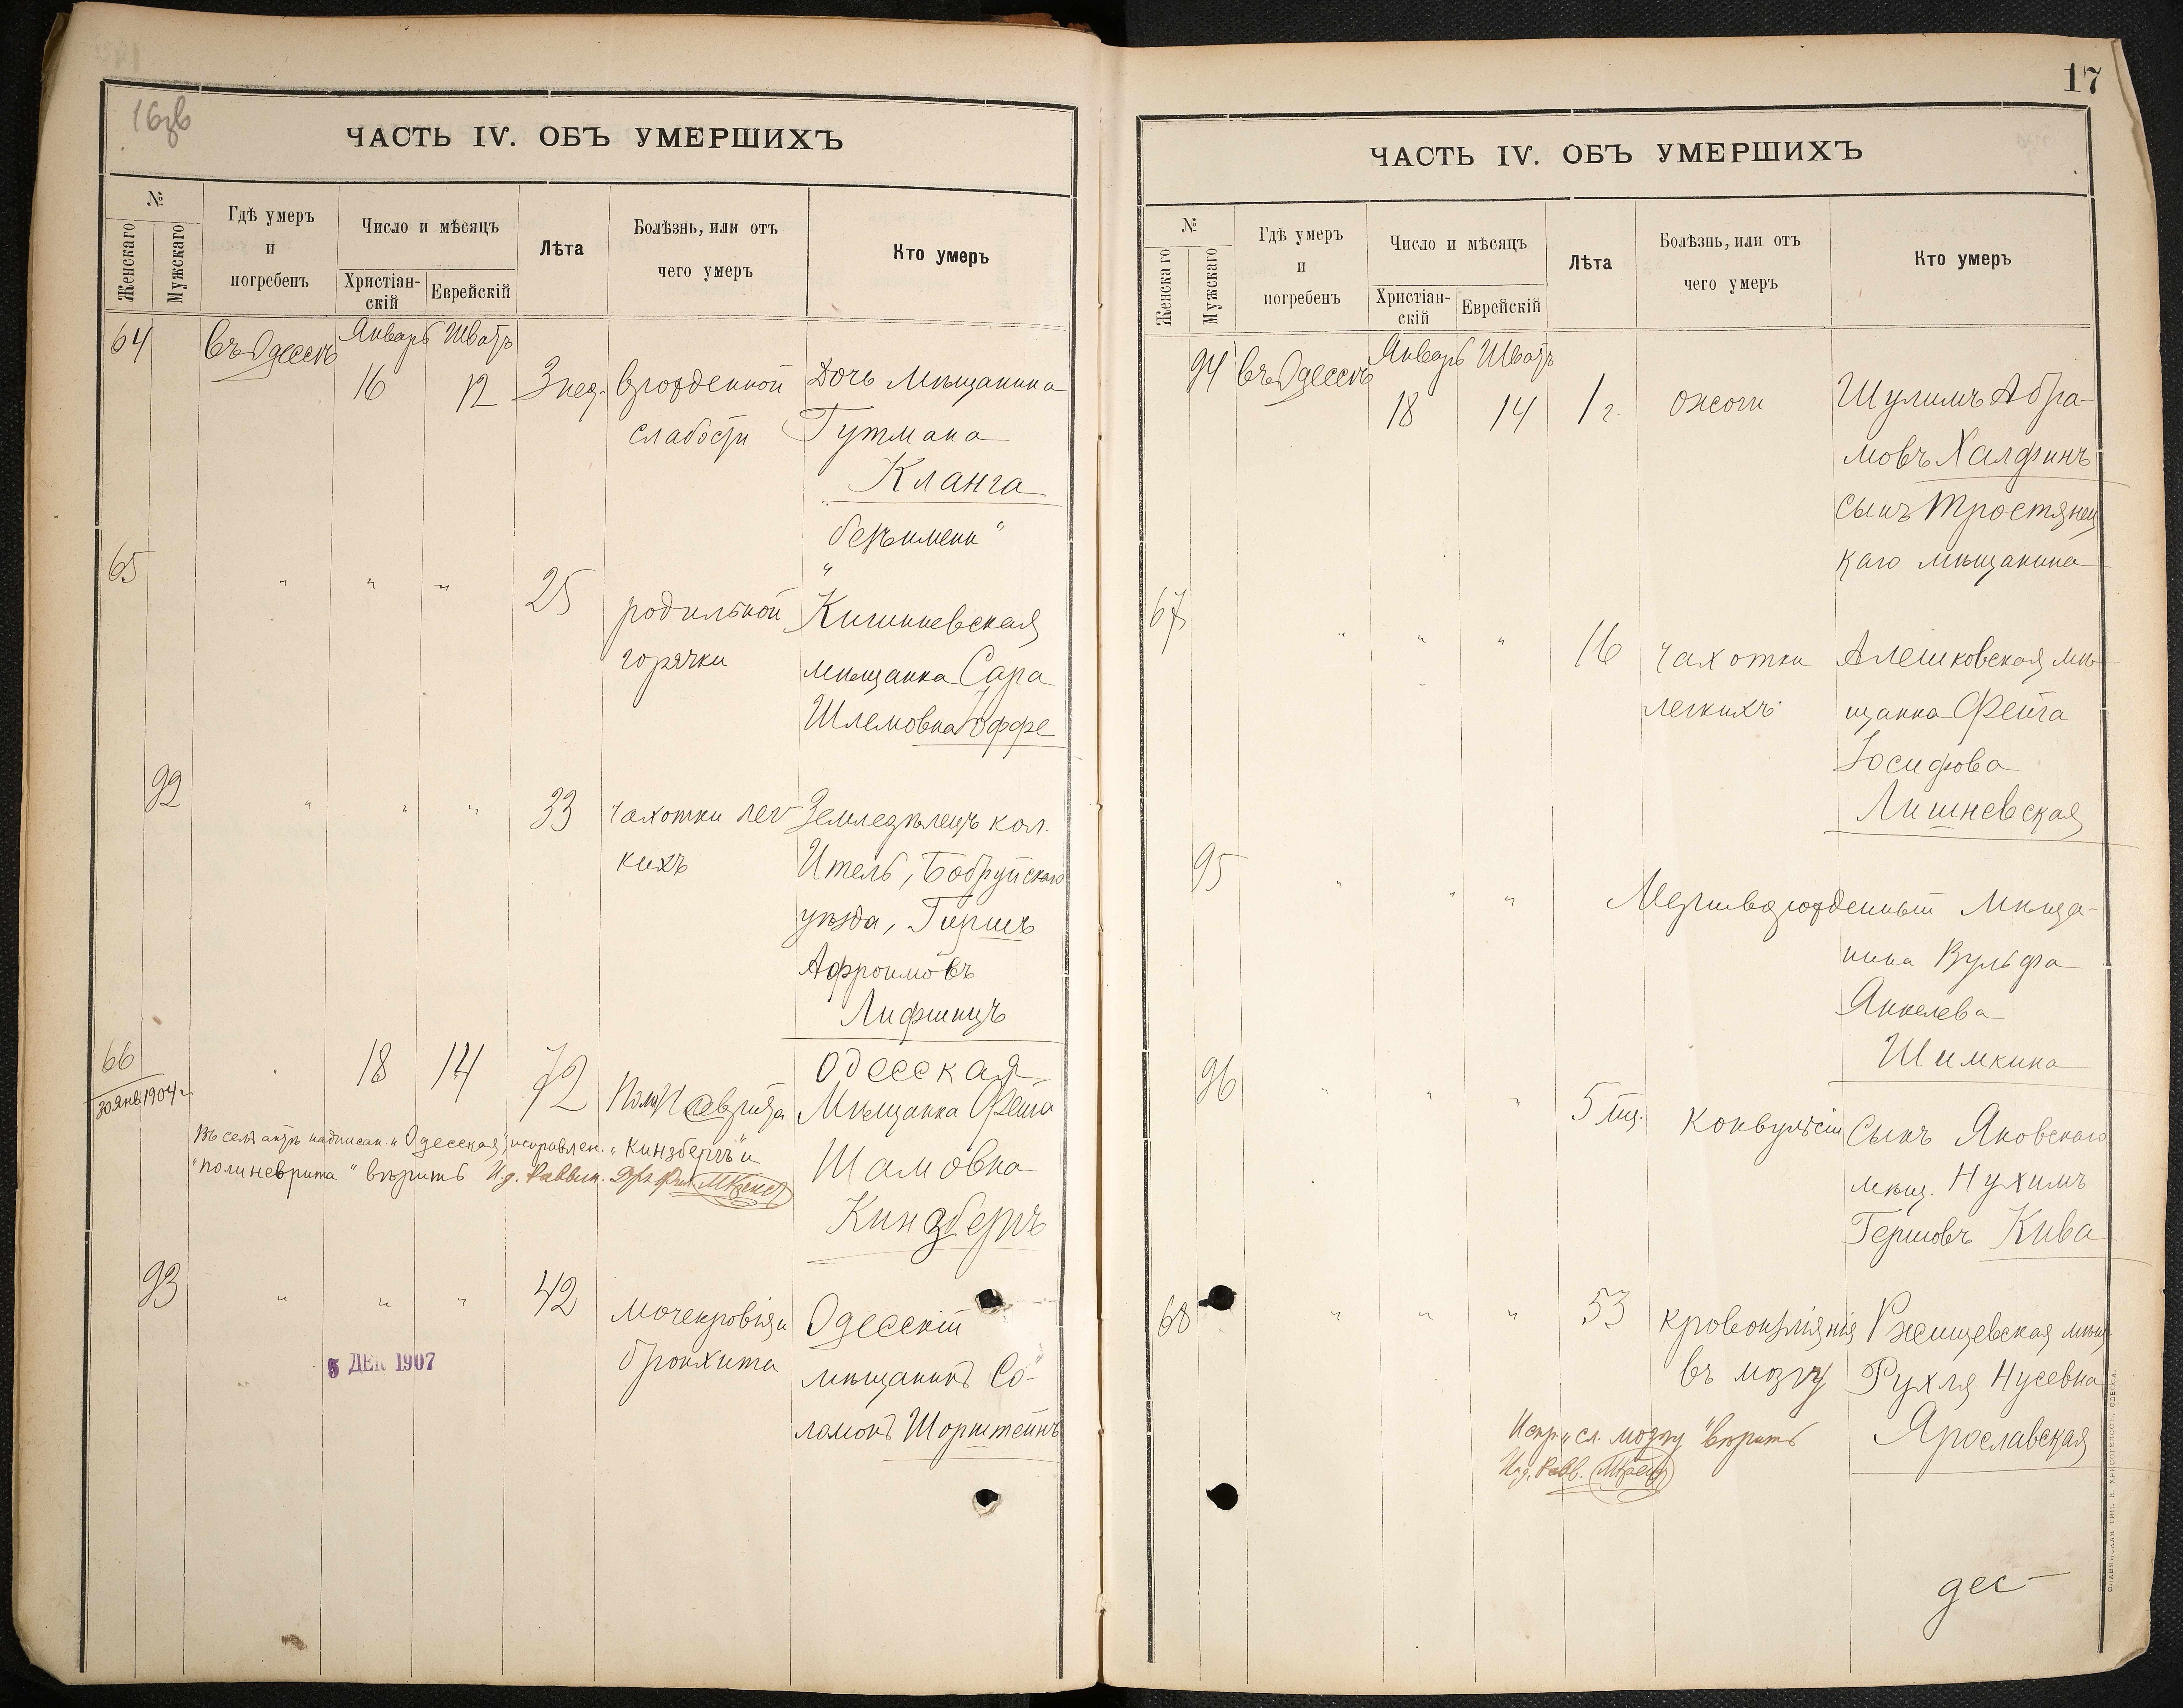 16зв
ЧАСТЬ IV. ОБЪ УМЕРШИХЪ
№
Женскаго
Мужскаго
Гдѣ умеръ
и
погребенъ
Число и мѣсяцъ
Христіан-
скій
Еврейскій
Лѣта
Болѣзнь, или отъ
чего умеръ
Кто умеръ
64 въ Одессѣ Январь Шватъ
16 12 3 нед. врожденной Дочь Мѣщанина
слабости Гутмана
Кланга
безъ имени"
65 " " " 25 "
родильной Кишиневская
горячки мѣщанка Сара
Шлемовна Іоффе
92 " " " 33 чахотки лег- Земледѣлецъ кол.
кихъ Итель, Бобруйскаго
уѣзда, Гиршъ
Афроимовъ
Лифшицъ
66 18 14 72 Полиневрита Одесская
30 янв 1904 г. Мѣщанка Фейга
Шамовна
Кинзбергъ
Въ семъ актѣ надписан. "Одесская", исправлен. "Кинзбергъ" и
"полиневрита" вѣрить И.д. Раввин. Дръ Фил. МКрепс
93 " " " 42 мочекровія и Одесскій
бронхита мѣщанинъ Со-
ломонъ Шорштейнъ
5 ДЕК 1907
17
ЧАСТЬ IV. ОБЪ УМЕРШИХЪ
№
Женскаго
Мужскаго
Гдѣ умеръ
и
погребенъ
Число и мѣсяцъ
Христіан-
скій
Еврейскій
Лѣта
Болѣзнь, или отъ
чего умеръ
Кто умеръ
94 въ Одессѣ Январь Шватъ
18 14 1 г. ожоги Шулимъ Абра-
мовъ Халфинъ
сынъ Тростянец
каго мѣщанина
67 " " " 16 чахотки Алешковская мѣ-
легкихъ щанка Фейга
Іосифова
Лишневская
95 " " " Мертворожденный Мѣща-
нина Вульфа
Янкелева
Шимкина
96 " " " 5 мц. Конвульсіи Сынъ Яновскаго
мѣщ. Нухимъ
Гершовъ Кива
68 " " " 53 кровоизліянія Ржищевская мѣщ.
въ мозгу Рухля Нусевна
Ярославская
Испр. "сл. мозгу" вѣрить
И.д. Равв. МКрепс
дес-
СЛАВЯНСКАЯ ТИП. Е. ХРИСОГЕЛОСЪ, ОДЕССА.